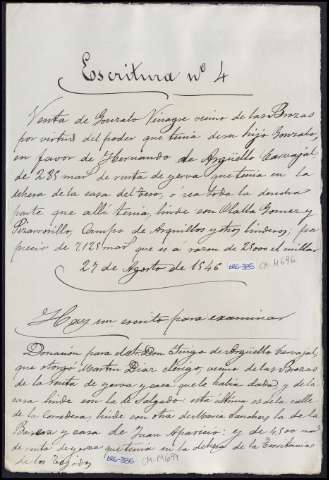 Escritura nº 4
Venta de Gonzalo Vinagre vecino de las Brozas
por virtud del poder que tenia de su hijo Gonzalo,
en favor de Hernando de Argüello Carvajal
de 285 mar. de renta de yerva que tenia en la
dehesa de la casa del ó sea toda la demas
parte que alli tenia, linde con Olalla Gomez y
Pizarroso, Campo de Arguillos y otros linderos; por
precio de 7125 mar. que es á razon de 25000 el millar
27 de Agosto de 1546
Hay un escrito para examinar
Donacion para el Don Iñigo de Argüello Carvajal,
que otorgó Martin Diaz clerigo, vecino de las Brozas
de la renta de yerva y casa que le habia dado y de la
casa linde con la de Salgado: esta ultima es á la calle
de la Corredera, linde con otra de Maria Sanchez la de la
Barrera y casa de Juan Aparicio: y de 4,500 mar.
de renta de yerva que tenia en la dehesa de la
de los